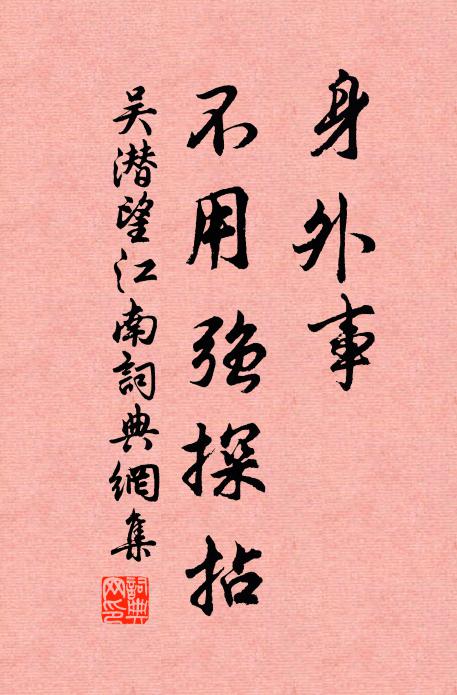 身外事
不用強探拈
吴潜望江南詞典網集
詞典网印